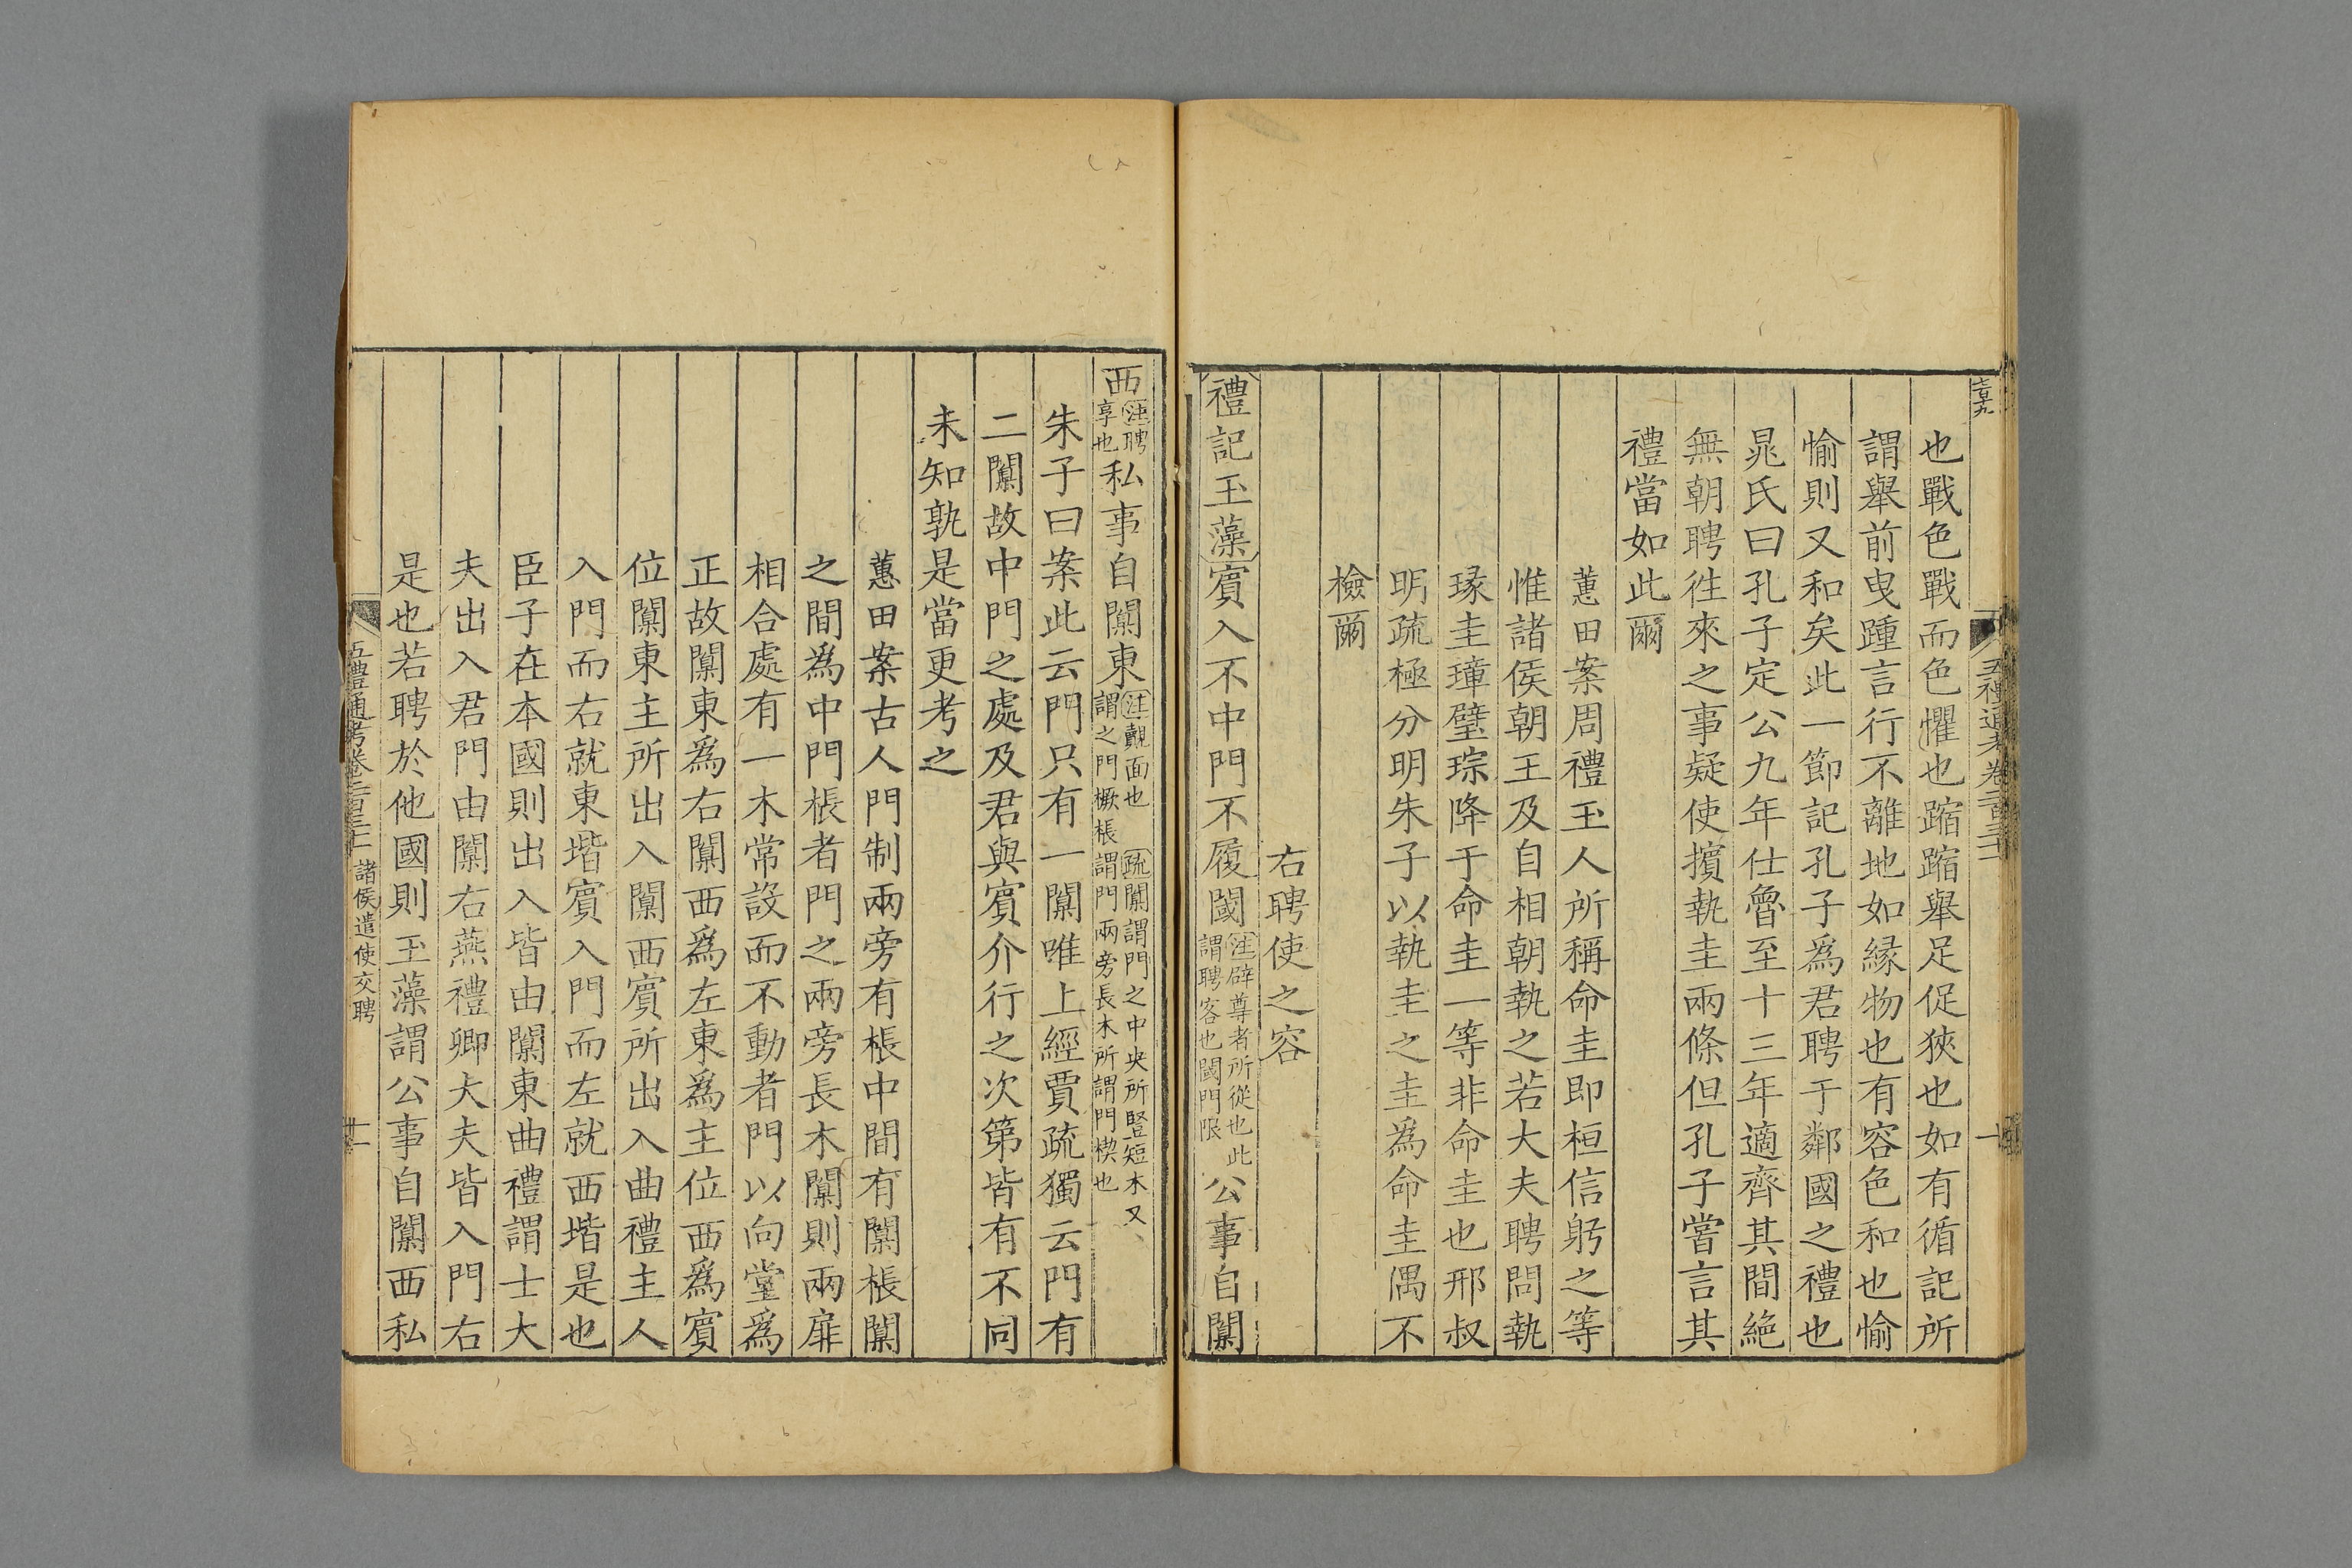 五禮通考卷二百三十一
也戰色戰而色懼也蹜蹜舉足促狹也如有循記所
謂舉前曳踵言行不離地如縁物也有容色和也愉
愉則又和矣此一節記孔子爲君聘于鄰國之禮也
晁氏曰孔子定公九年仕魯至十三年適齊其間絶
無朝聘徃來之事疑使擯執圭兩條但孔子嘗言其
禮當如此爾
蕙田案周禮玉人所稱命圭即桓信躬之等
惟諸侯朝王及自相朝執之若大夫聘問執
瑑圭璋璧琮降于命圭一等非命圭也邢叔
明疏極分明朱子以執圭之圭爲命圭偶不
檢爾
右聘使之容
禮記玉藻賓入不中門不履閾注辟尊者所從也此謂聘客也閾門限公事自闑
西注聘享也私事自闑東注覿面也疏闑謂門之中央所豎短木又謂之門橛棖謂門兩旁長木所謂門楔也
朱子曰案此云門只有一闑唯上經賈疏獨云門有
二闑故中門之處及君與賓介行之次第皆有不同
未知孰是當更考之
蕙田案古人門制兩旁有棖中間有闑棖闑
之間爲中門棖者門之兩旁長木闑則兩扉
相合處有一木常設而不動者門以向堂爲
正故闑東爲右闑西爲左東爲主位西爲賓
位闑東主所出入闑西賓所出入曲禮主人
入門而右就東堦賓入門而左就西堦是也
臣子在本國則出入皆由闑東曲禮謂士大
夫出入君門由闑右燕禮卿大夫皆入門右
是也若聘於他國則玉藻謂公事自闑西私
五禮通考卷二百三十一 諸侯遣使交聘